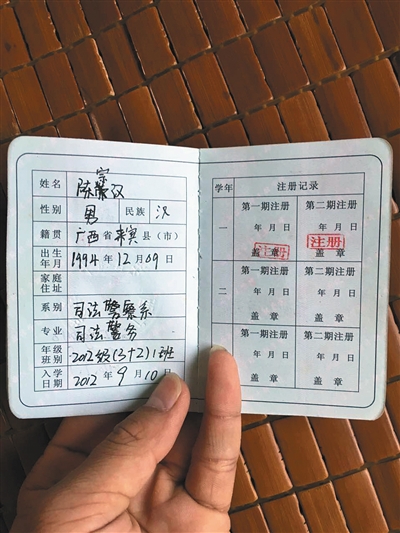 姓名 陈宗汉
性别 男 民族 汉
籍贯 广西省来宾县(市)
出生年月 1994年12月09日
家庭住址
系别 司法警察系
专业 司法警务
年级班别 2012级(3+2)1班
入学日期 2012年9月10日
学年 注册记录
一 第一期注册 第二期注册
年 月 日 年 月 日
注册 注册
盖 章 盖 章
二 第一期注册 第二期注册
年 月 日 年 月 日
盖 章 盖 章
第一期注册 第二期注册
年 月 日 年 月 日
盖 章 盖 章